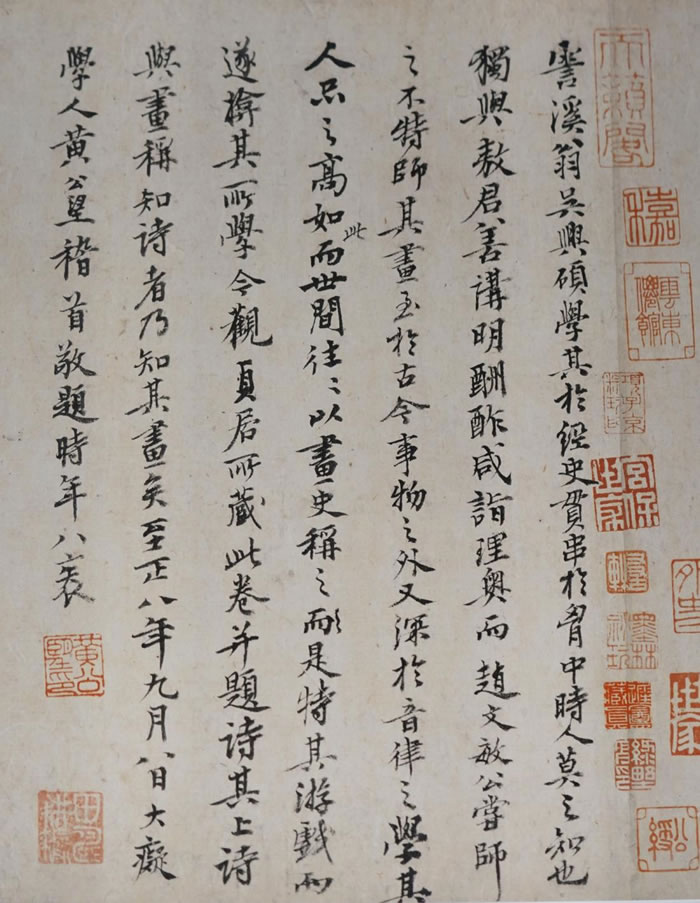 霅溪翁吳興碩學其於經史貫串於胷中時人莫之知也
獨與敖君善講明酬酢咸詣理奥而趙文敏公嘗師
之不特師其畫至於古今事物之外又深於音律之學其
人品之高如此而世間往〻以畫史稱之而是特其游戲而
遂揜其所學今觀貞居所藏此卷并題詩其上詩
與畫稱知詩者乃知其畫矣至正八年九月八日大癡
學人黄公望稽首敬題時年八袠
天籟閣
雲東僊館
宮保世家
墨林祕玩